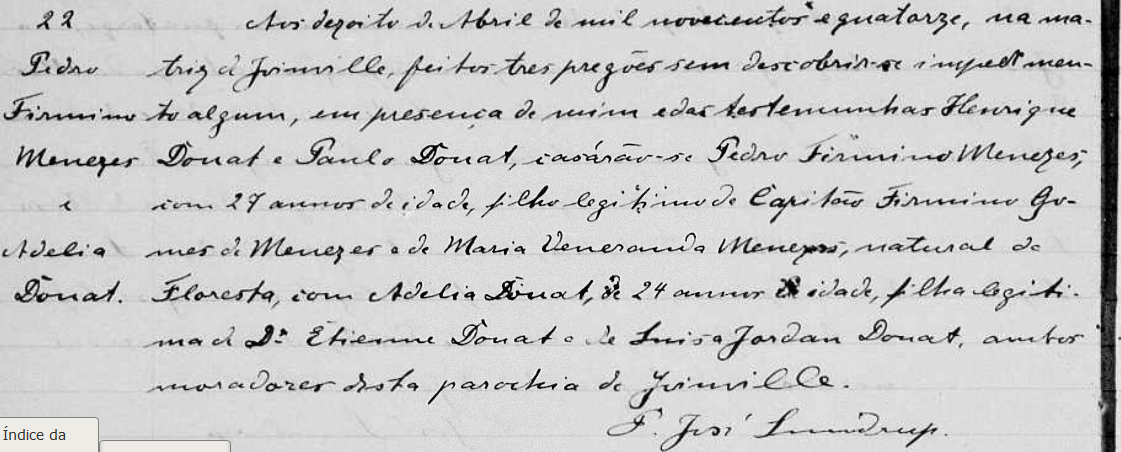 22
Pedro
Firmino
Menezes
e
Adelia
Donat.
Aos dezoito de Abril de mil novecentos e quatorze, na ma-
triz de Joinville, feitos tres pregões sem descobrir-se impedimen-
to algum, em presença de mim e das testemunhas Henrique
Donat e Paulo Donat, casárão-se Pedro Firmino Menezes,
com 27 annos de idade, filho legitimo de Capitão Firmino Go-
mes de Menezes e de Maria Veneranda Menezes, natural de
Floresta, com Adelia Donat, de 24 annos de idade, filha legiti-
ma de Dr. Etienne Donat e de Luisa Jordan Donat, ambos
moradores desta parochia de Joinville.
P. José Sundrup.
Índice da